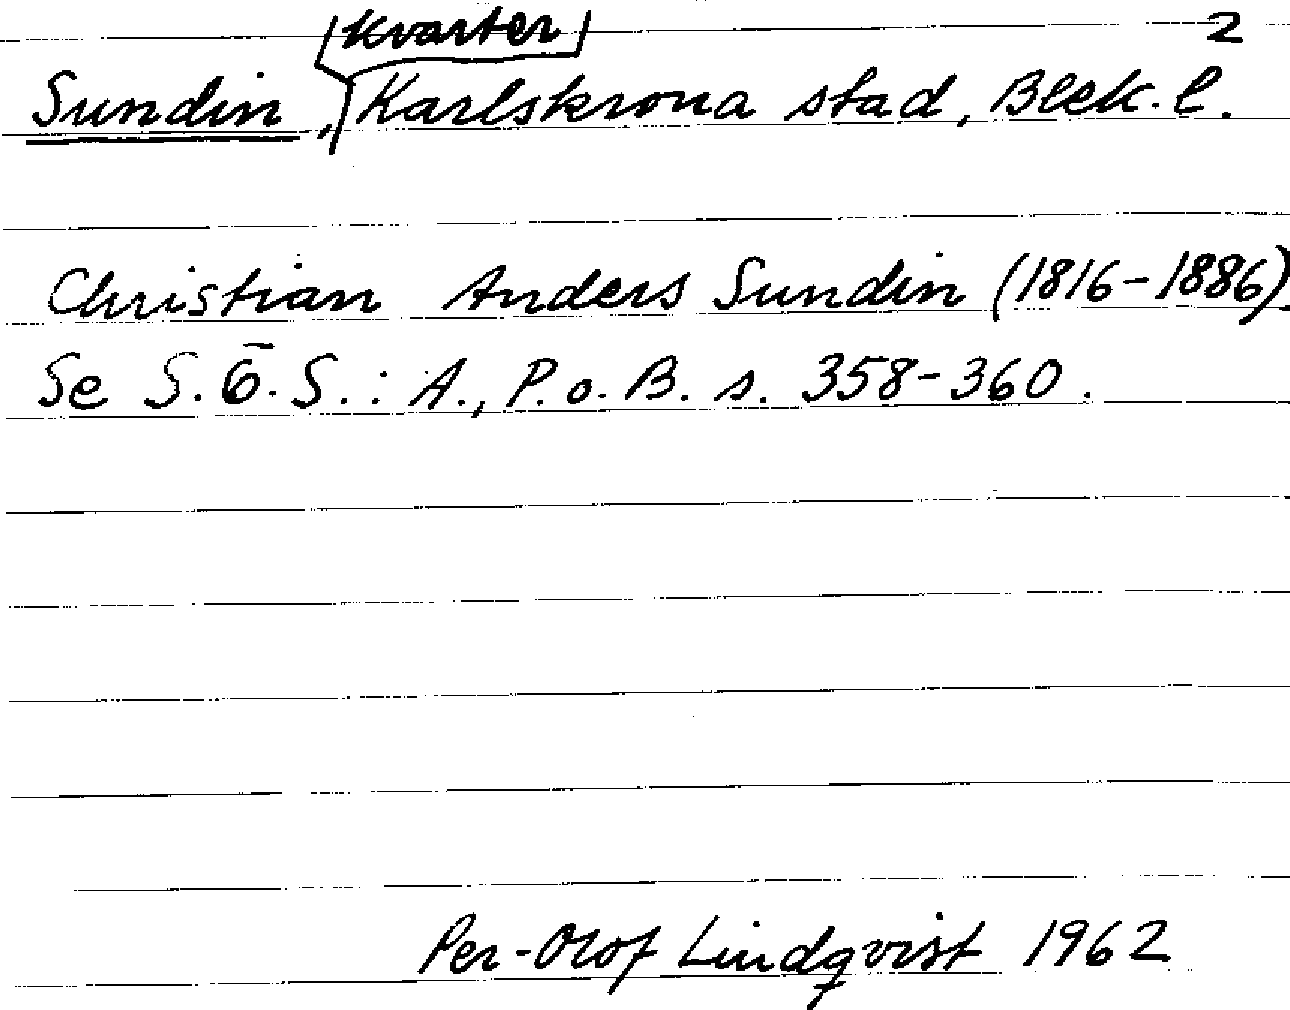 kvarter 2
Sundin, Karlskrona stad, Blek. l.
Christian Anders Sundin (1816-1886).
Se S.Ö.S.: A., P.o.B. s. 358-360.
Per-Olof Lindqvist 1962